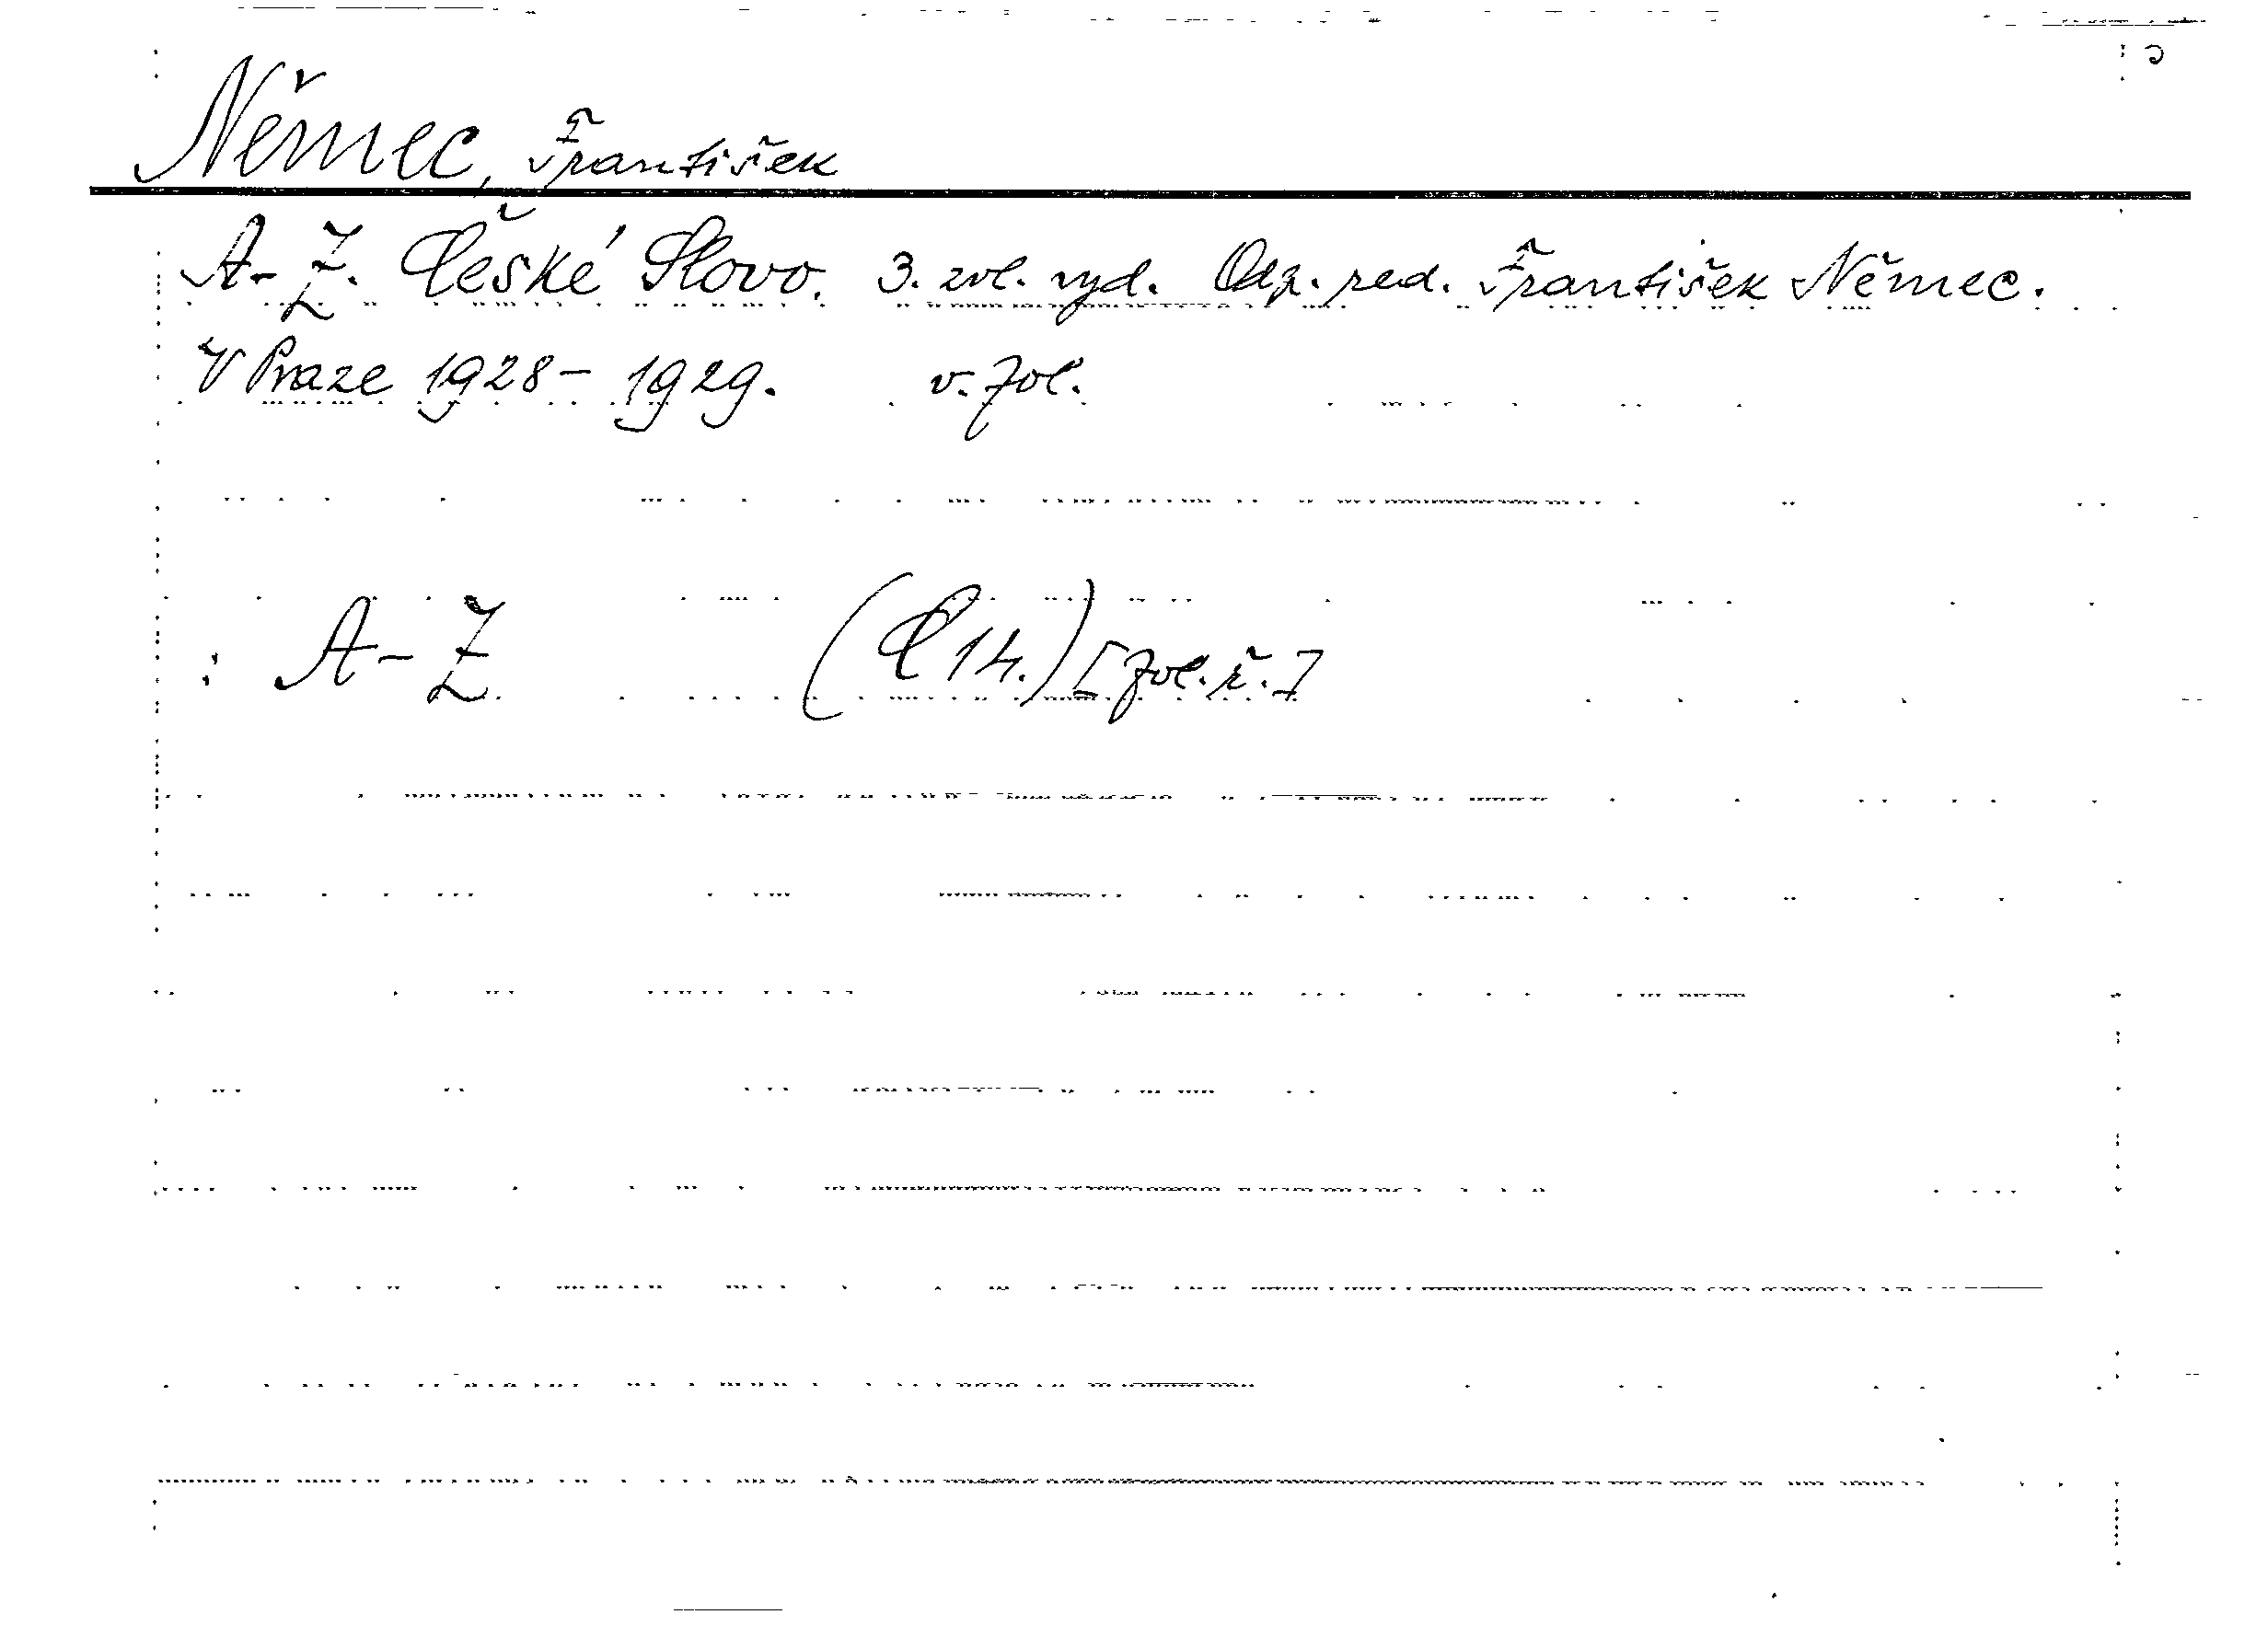 Němec, František
A-Z. České Slovo. 3. zvl. vyd. Odp. red. František Němec.
V Praze 1928-1929. v. fol.
: A-Z (C 14.) [fol. ř.]